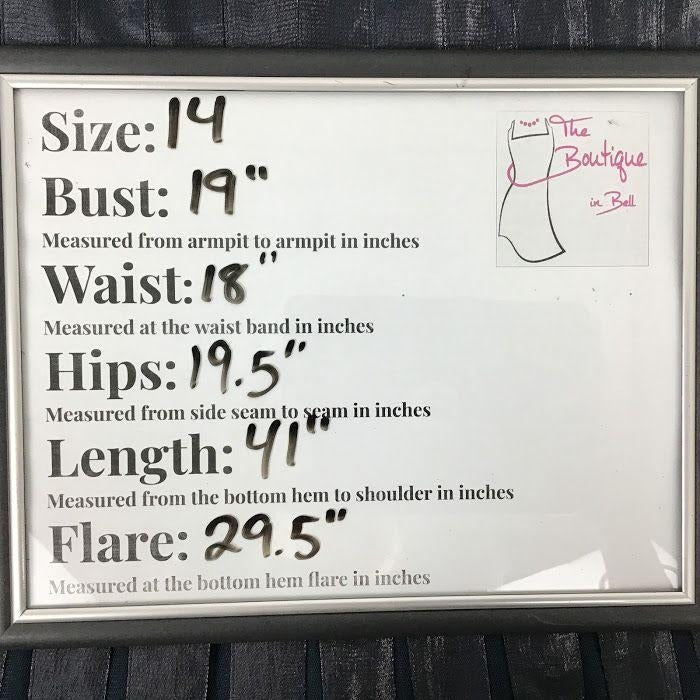 Size: 14
The
Boutique
in Bell
Bust: 19"
Measured from armpit to armpit in inches
Waist: 18"
Measured at the waist band in inches
Hips: 19.5"
Measured from side seam to seam in inches
Length: 41"
Measured from the bottom hem to shoulder in inches
Flare: 29.5"
Measured at the bottom hem flare in inches